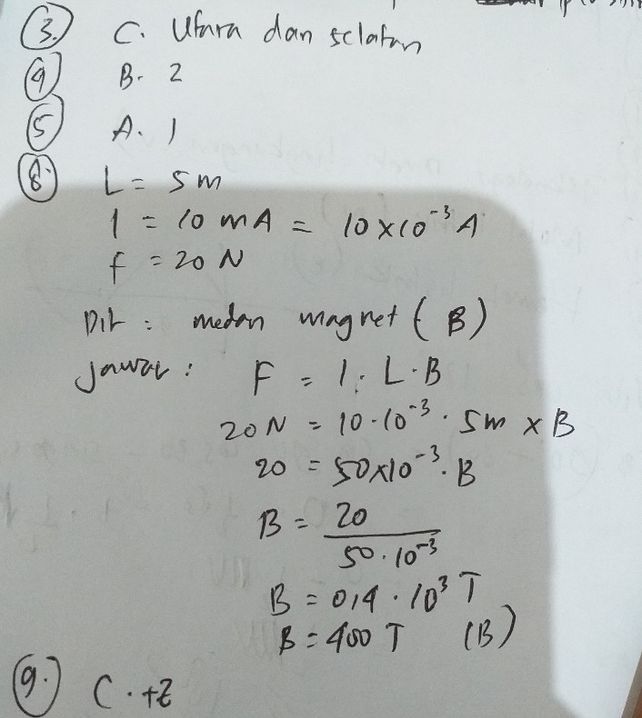 3. C. Utara dan selatan
4 B. 2
5 A. 1
8. L = 5 m
I = 10 mA = 10 x 10⁻³ A
f = 20 N
Dit : medan magnet ( B )
Jawab : F = I . L . B
20 N = 10 . 10⁻³ . 5m x B
20 = 50 x 10⁻³ . B
B = 20 / 50 . 10⁻³
B = 0,4 . 10³ T
B = 400 T (B)
9. C . +Z